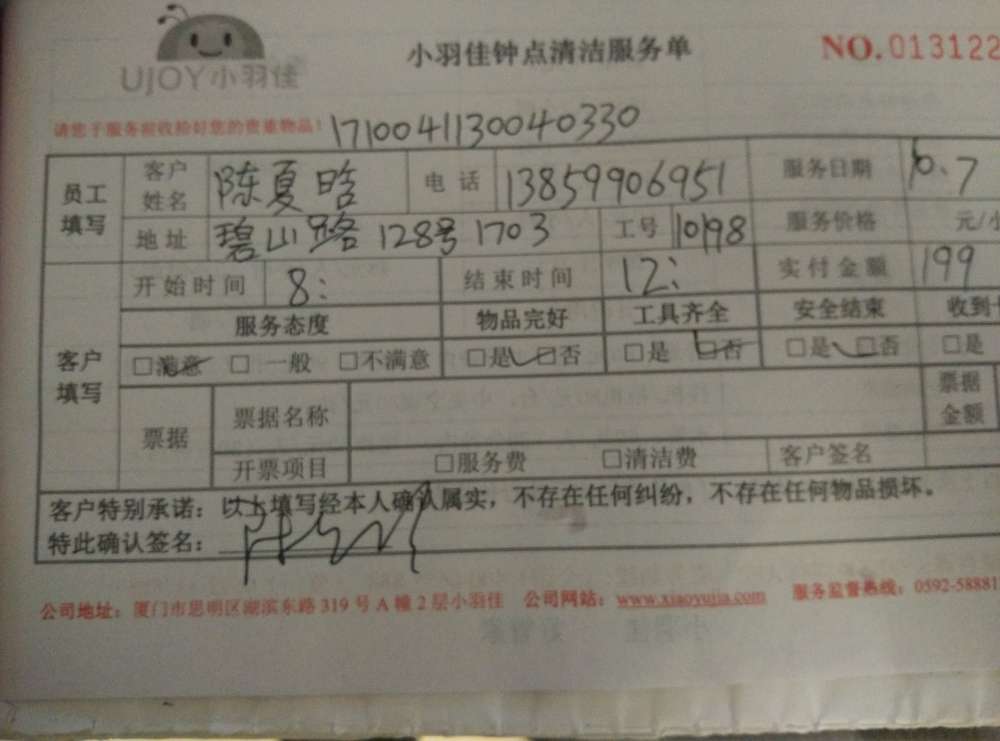 UJOY小羽佳
小羽佳钟点清洁服务单 NO.013122
请您于服务前收拾好您的贵重物品! 1710041130040330
员工填写 客户姓名 陈夏晗 电话 13859906951 服务日期 10.7
地址 碧山路128号1703 工号 10198 服务价格 元/
客户填写 开始时间 8: 结束时间 12: 实付金额 199
服务态度 物品完好 工具齐全 安全结束 收到
□满意 □一般 □不满意 □是 □否 □是 □否 □是 □否 □是
票据 票据名称 票据金额
开票项目 □服务费 □清洁费 客户签名
客户特别承诺:以上填写经本人确认属实,不存在任何纠纷,不存在任何物品损坏。
特此确认签名:
公司地址:厦门市思明区湖滨东路319号A幢2层小羽佳 公司网站:www.xiaoyujia.com 服务监督热线:0592-58881